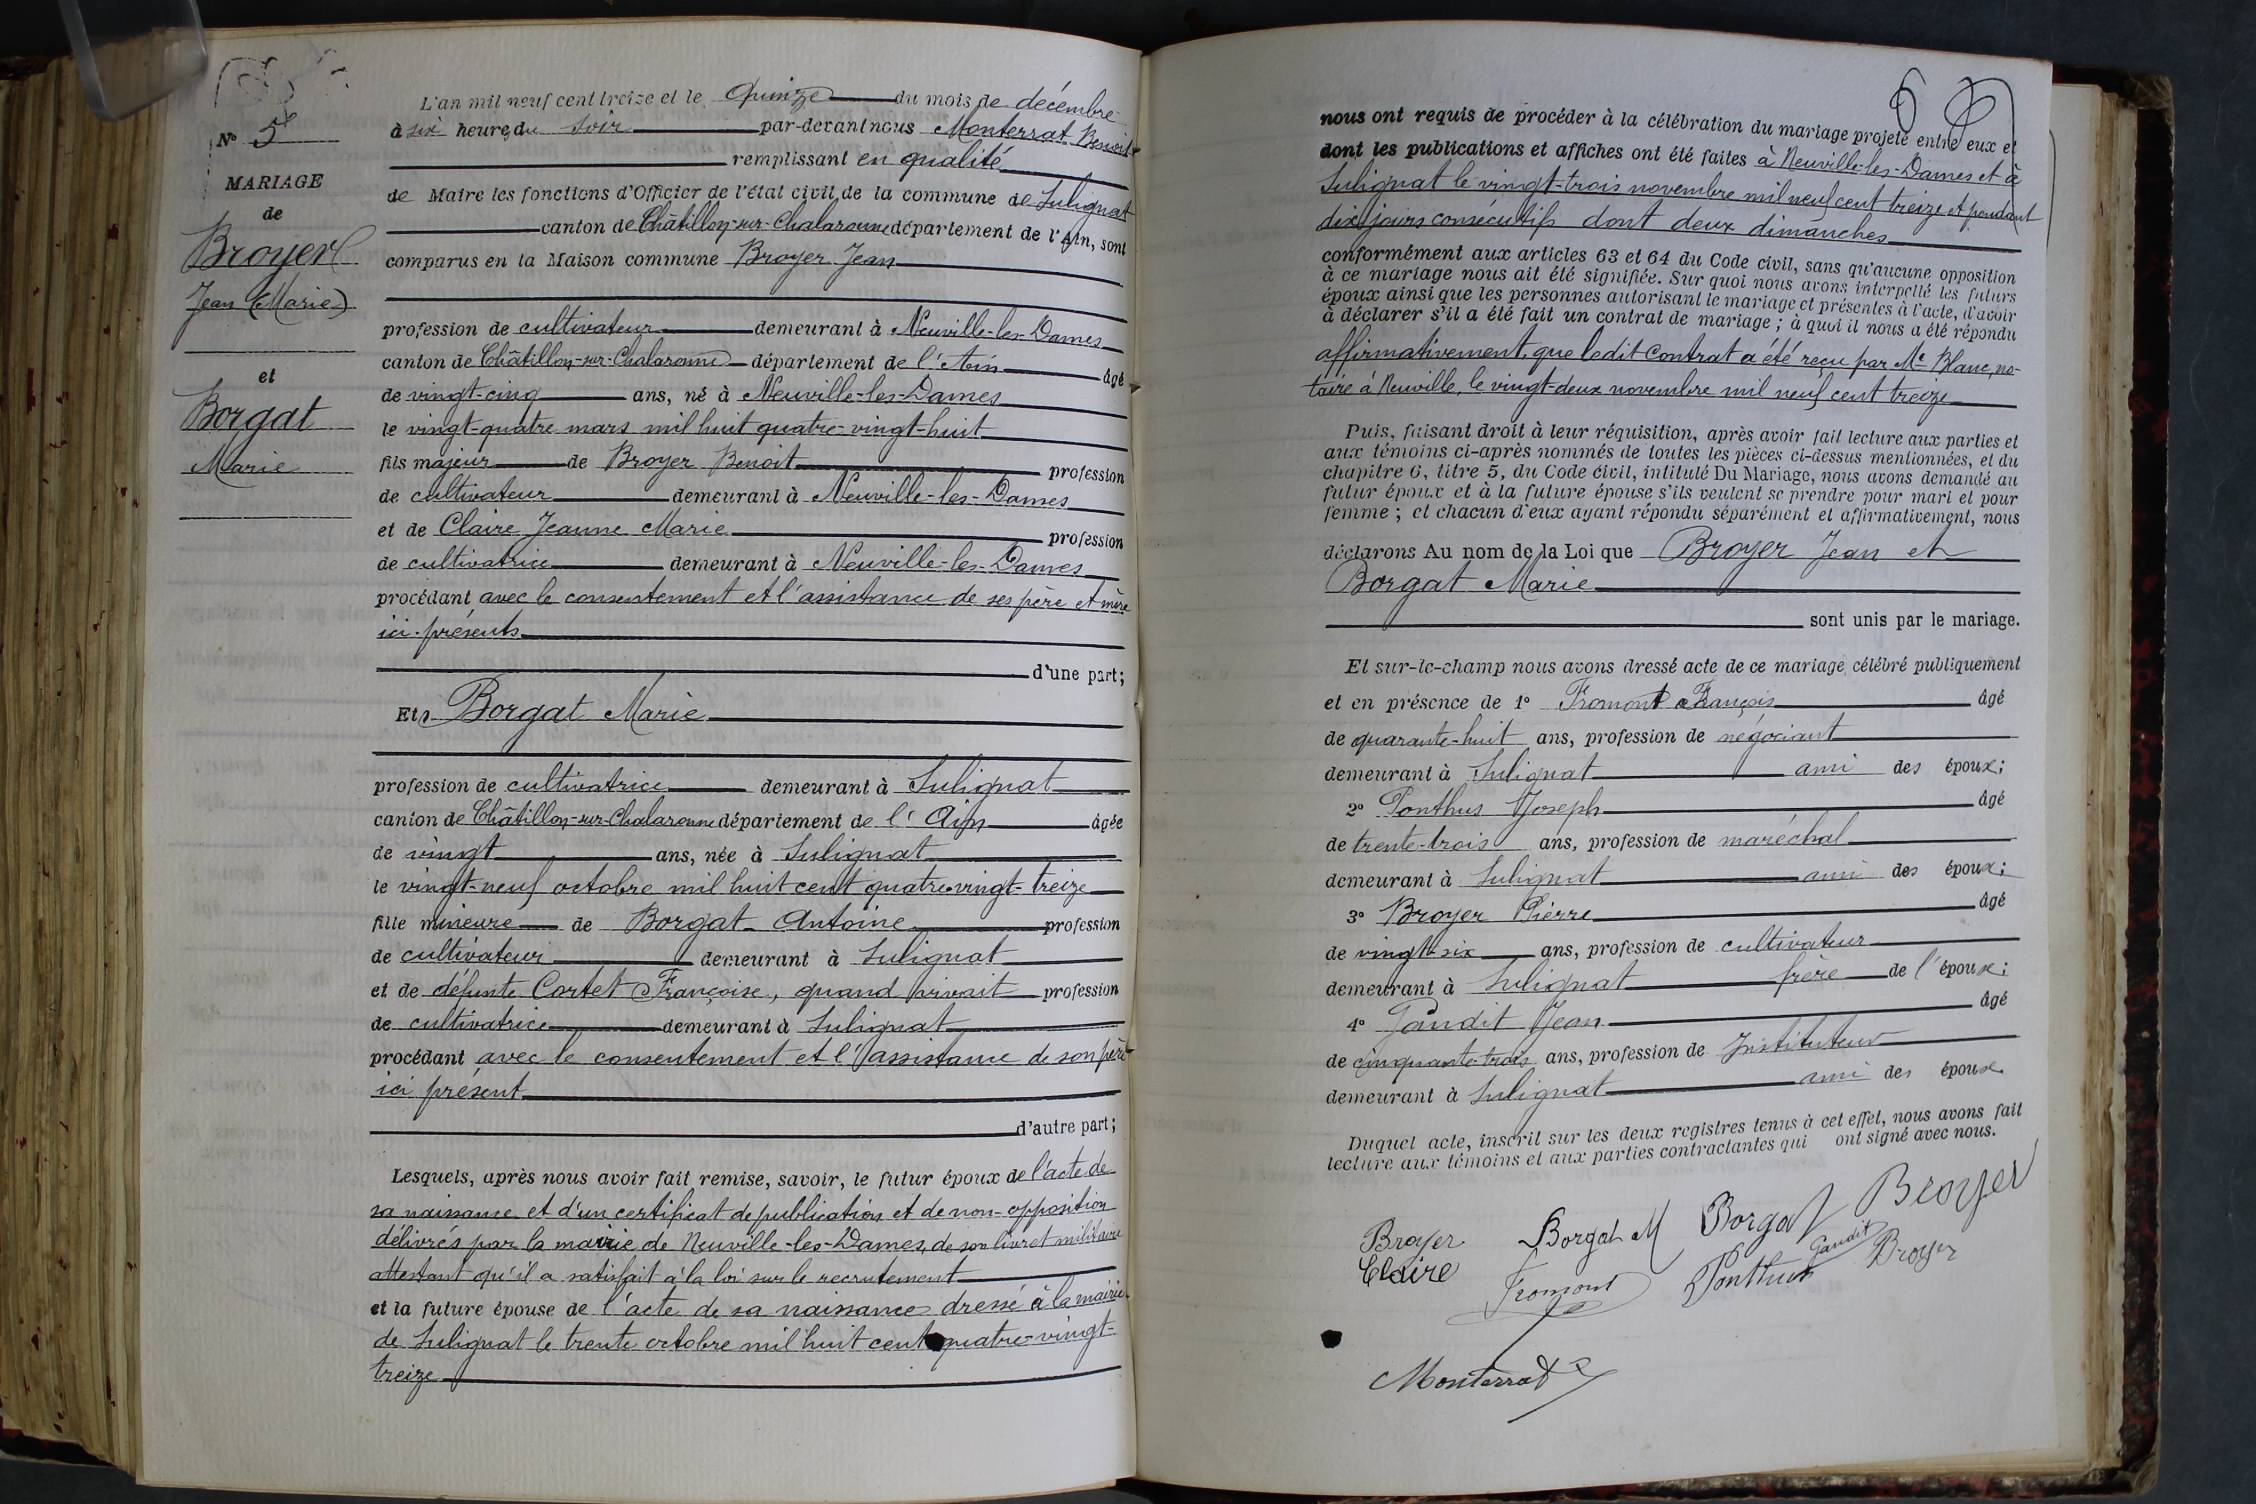 N° 5
MARIAGE
de
Broyer
Jean (Marie)
et
Borgat
Marie
L'an mil neuf cent treize et le Quinze du mois de décembre
à six heures du soir par-devant nous Monterrat Benoit
remplissant en qualité
de Maire les fonctions d'Officier de l'état civil de la commune de Sulignat
canton de Châtillon-sur-Chalaronne département de l'Ain, sont
comparus en la Maison commune Broyer Jean
profession de cultivateur demeurant à Neuville-les-Dames
canton de Châtillon-sur-Chalaronne département de l'Ain âgé
de vingt-cinq ans, né à Neuville-les-Dames
le vingt-quatre mars mil huit quatre-vingt-huit
fils majeur de Broyer Benoit profession
de cultivateur demeurant à Neuville-les-Dames
et de Claire Jeanne Marie profession
de cultivatrice demeurant à Neuville-les-Dames
procédant avec le consentement et l'assistance de ses père et mère
ici présents
d'une part;
Et Borgat Marie
profession de cultivatrice demeurant à Sulignat
canton de Châtillon-sur-Chalaronne département de l'Ain âgée
de vingt ans, née à Sulignat
le vingt-neuf octobre mil huit cent quatre-vingt-treize
fille mineure de Borgat Antoine profession
de cultivateur demeurant à Sulignat
et de défunte Cortet Françoise, quand vivait profession
de cultivatrice demeurant à Sulignat
procédant avec le consentement et l'assistance de son père
ici présent
d'autre part;
Lesquels, après nous avoir fait remise, savoir, le futur époux de l'acte de
sa naissance et d'un certificat de publication et de non-opposition
délivrés par la mairie de Neuville-les-Dames, de son livret militaire
attestant qu'il a satisfait à la loi sur le recrutement
et la future épouse de l'acte de sa naissance dressé à la mairie
de Sulignat le trente octobre mil huit cent quatre-vingt-
treize
nous ont requis de procéder à la célébration du mariage projeté entre eux et
dont les publications et affiches ont été faites à Neuville-les-Dames et à
Sulignat le vingt-trois novembre mil neuf cent treize et pendant
dix jours consécutifs dont deux dimanches
conformément aux articles 63 et 64 du Code civil, sans qu'aucune opposition
à ce mariage nous ait été signifiée. Sur quoi nous avons interpellé les futurs
époux ainsi que les personnes autorisant le mariage et présentes à l'acte, d'avoir
à déclarer s'il a été fait un contrat de mariage; à quoi il nous a été répondu
affirmativement, que ledit contrat a été reçu par Me Blanc, no-
taire à Neuville, le vingt-deux novembre mil neuf cent treize
Puis, faisant droit à leur réquisition, après avoir fait lecture aux parties et
aux témoins ci-après nommés de toutes les pièces ci-dessus mentionnées, et du
chapitre 6, titre 5, du Code Civil, intitulé Du Mariage, nous avons demandé au
futur époux et à la future épouse s'ils veulent se prendre pour mari et pour
femme; et chacun d'eux ayant répondu séparément et affirmativement, nous
déclarons Au nom de la Loi que Broyer Jean et
Borgat Marie
sont unis par le mariage.
Et sur-le-champ nous avons dressé acte de ce mariage célébré publiquement
et en présence de 1° Fromont François âgé
de quarante-huit ans, profession de négociant
demeurant à Sulignat ami des époux;
2° Ponthus Joseph âgé
de trente-trois ans, profession de maréchal
demeurant à Sulignat ami des époux;
3° Broyer Pierre âgé
de vingt-six ans, profession de cultivateur
demeurant à Sulignat frère de l'époux;
4° Gaudit Jean âgé
de cinquante-trois ans, profession de Instituteur
demeurant à Sulignat ami des époux
Duquel acte, inscrit sur les deux registres tenus à cet effet, nous avons fait
lecture aux témoins et aux parties contractantes qui ont signé avec nous.
Broyer Borgat M Borgat Broyer
Claire Fromont Ponthus Gaudit Broyer
Monterrat